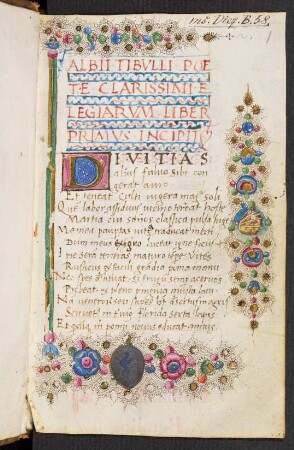 ms. Dieg. B. 58.
1
ALBII TIBULLI POE
TE CLARISSIMI E
LEGIARUM LIBER
PRIMUS INCIPIT
DIVITIAS
alius fulvo sibi con
gerat auro
Et teneat culti iugera magna soli
Que labor assiduus vicino terreat hoste
Martia cui somnos classica pulsa
Me mea paupertas vite traducat inerti
Dum meus exiguo luceat igne focus
Ipse seram teneras maturo tempore vites
Rusticus et facili grandia poma manu
Nec spes destituat sed frugum semper acervos
Prebeat et pleno pinguia musta lacu
Nam veneror seu stipes habet desertus in agris
Seu vetus in florida serta
Et quodcumque mihi pomum novus educat annus